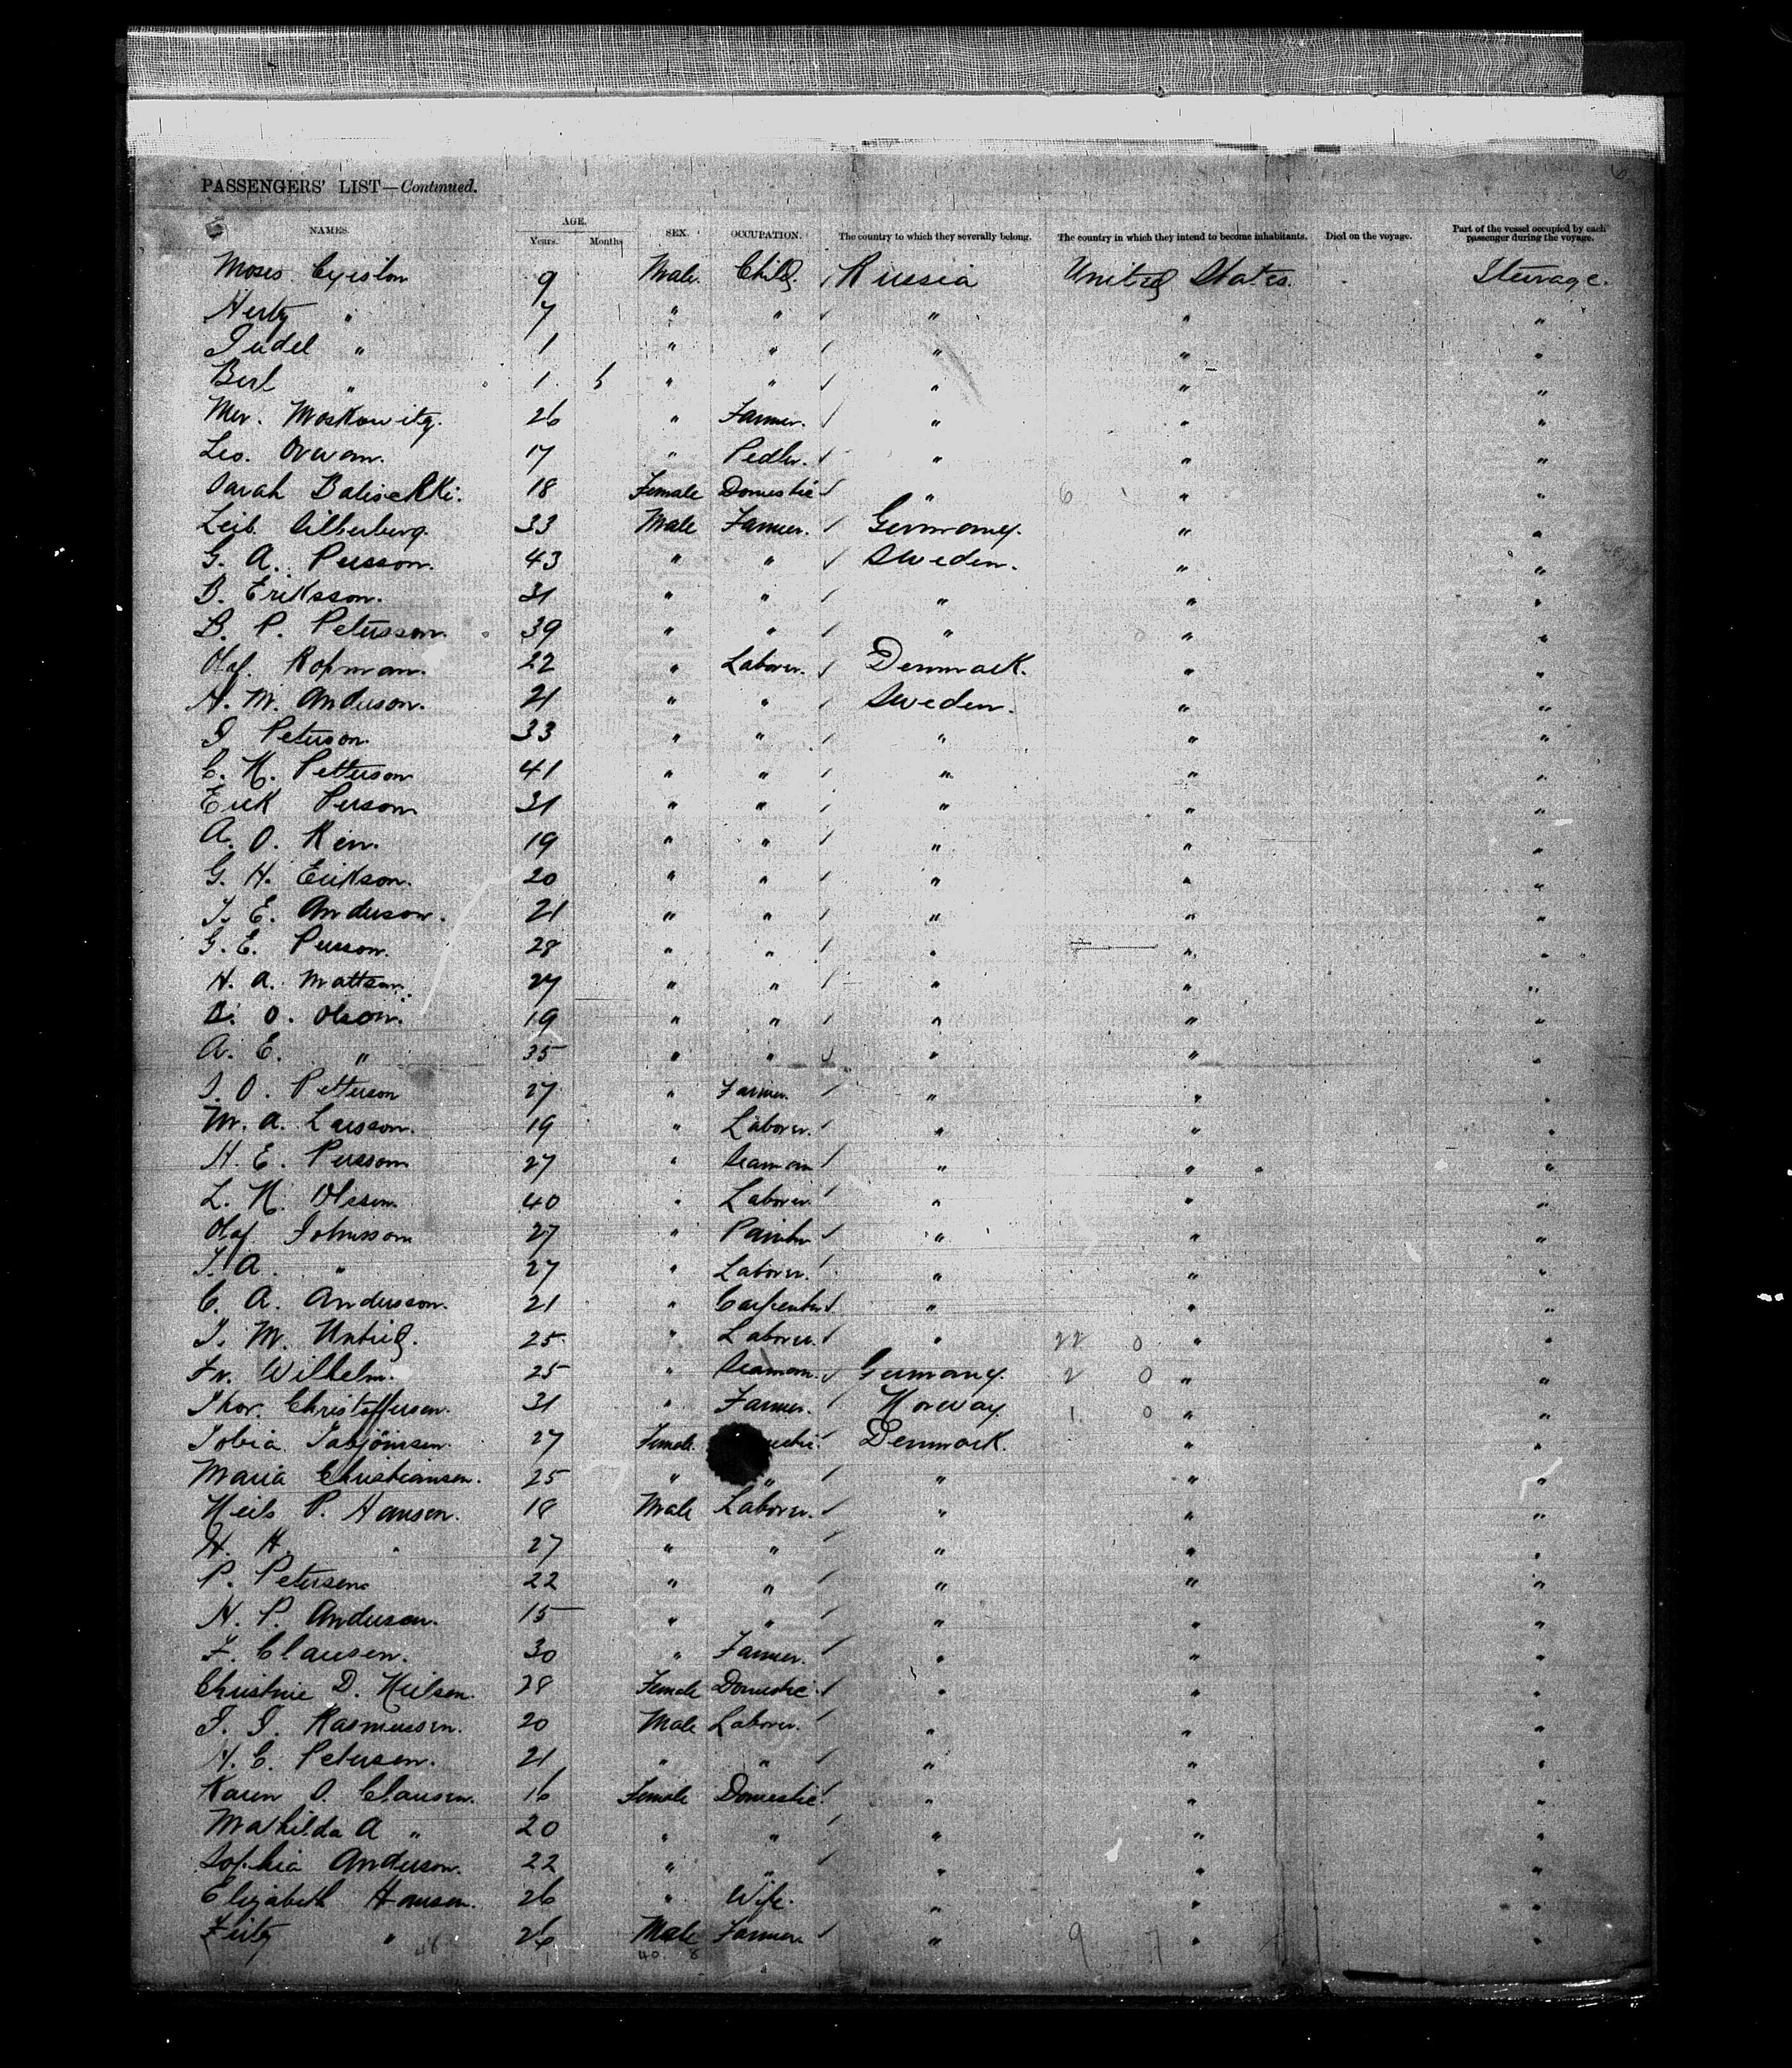 PASSENGERS' LIST—Continued.
NAMES. AGE. Years. Months SEX. OCCUPATION. The country to which they severally belong. The country in which they intend to become inhabitants. Died on the voyage. Part of the vessel occupied by each passenger during the voyage.
Moses 9 Male. Child. Russia United States. Steerage.
" 7 " " " " "
Judel " 1 " " " " "
Berl " 1 " " " " "
Moskowitz. 26 " Farmer. " " "
Leo. 17 " Pedler. " " "
Sarah 18 Female Domestic " 6 " "
Leib Silberberg. 33 Male Farmer. Germany. " "
G. A. Persson. 43 " " Sweden. " "
B. Eriksson. 31 " " " " "
B. P. Petersson. 39 " " " " "
Olaf. 22 " Laborer. Denmark. " "
A. M. Anderson. 21 " " Sweden. " "
J Peterson. 33 " " " " "
C. K. Petterson 41 " " " " "
Erik Person 31 " " " " "
A. O. 19 " " " " "
G. H. Erikson. 20 " " " " "
J. E. Anderson. 21 " " " " "
G. E. Persson. 28 " " " " "
H. A. Mattson. 27 " " " " "
O. Olson. 19 " " " " "
A. E. " 35 " " " " "
J. O. Petterson 27 " Farmer. " " "
M. A. Larsson. 19 " Laborer. " " "
H. E. Persson 27 " Seaman " " "
L. N. Olsson. 40 " Laborer. " " "
Olaf. Johnsson 27 " Painter " " "
J. A. " 27 " Laborer. " " "
C. A. Andersson. 21 " Carpenter " " "
J. M. 25 " Laborer. " 22 0 " "
Fr. Wilhelm. 25 " Seaman. Germany. 2 0 " "
Thor. Christoffersen. 31 " Farmer. Norway. 1 0 " "
27 Female. Denmark. " "
Maria Christiansen. 25 " " " " "
Neils P. Hansen. 18 Male Laborer. " " "
H. H. " 27 " " " " "
P. Petersen. 22 " " " " "
N. P. Andersen. 15 " " " " "
F. Clausen. 30 " Farmer. " " "
Christine D. Neilsen. 28 Female Domestic " " "
J. J. Rasmussen. 20 Male Laborer. " " "
H. C. Petersen. 21 " " " " "
Karen O. Clausen. 16 Female Domestic. " " "
Mathilda A " 20 " " " " "
Sophia Anderson. 22 " " " " "
Elizabeth Hansen. 26 " Wife. " " "
Fritz " 26 Male Farmer. " 9 7 " "
48 40 8